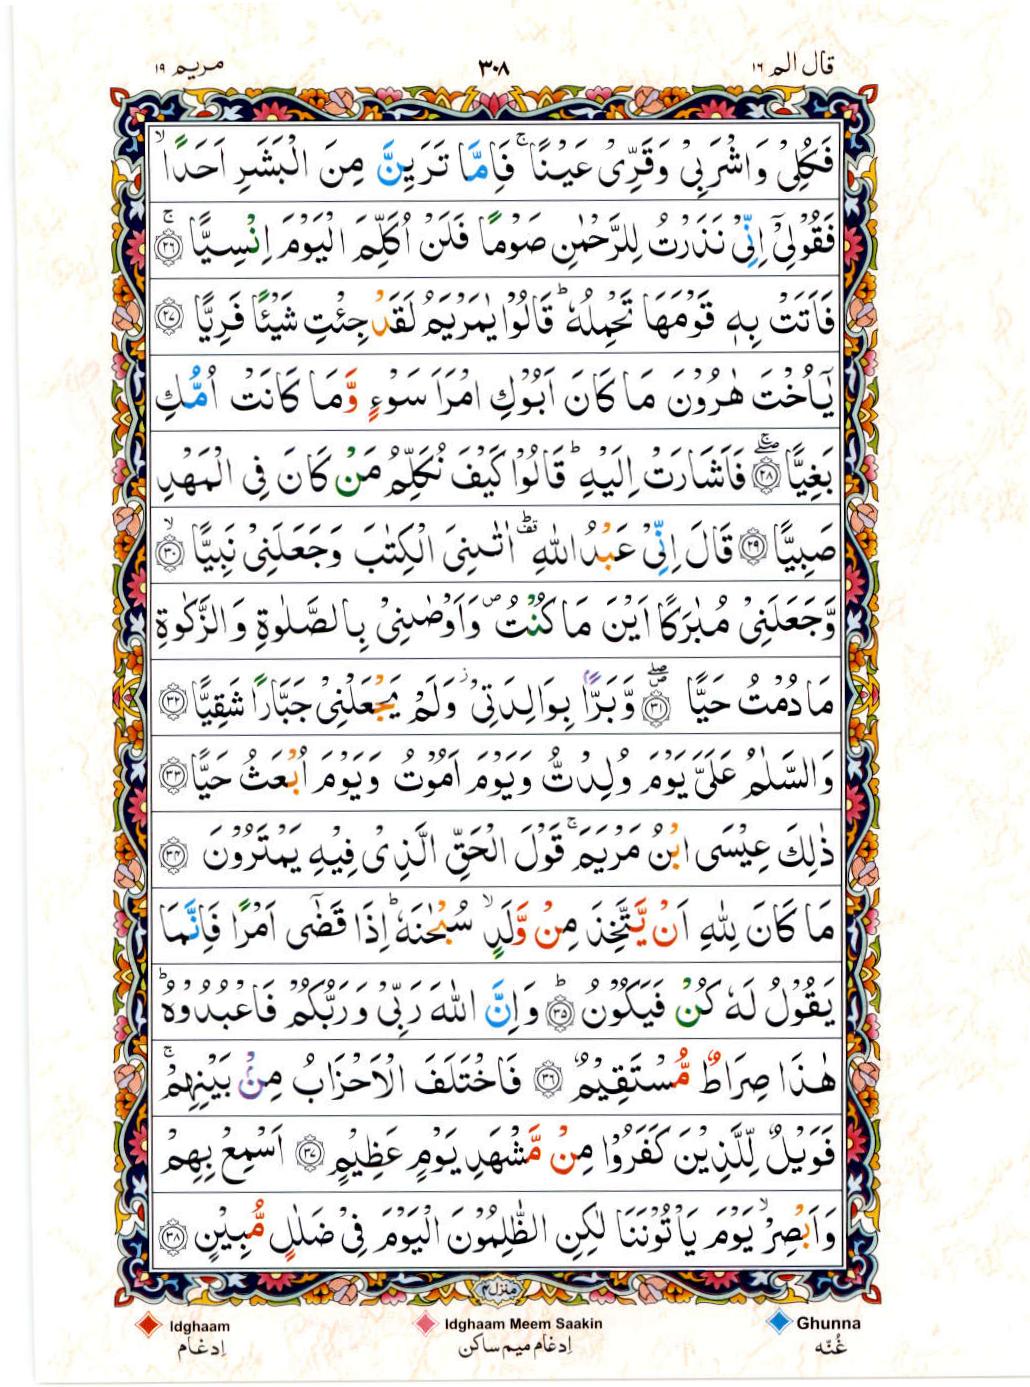 قال الم ١٦ ٣٠٨ مريم ١٩
فَكُلِیْ وَاشْرَبِیْ وَقَرِّیْ عَیْنًا ۚ فَاِمَّا تَرَیِنَّ مِنَ الْبَشَرِ اَحَدًا ۙ
فَقُوْلِیْۤ اِنِّیْ نَذَرْتُ لِلرَّحْمٰنِ صَوْمًا فَلَنْ اُكَلِّمَ الْیَوْمَ اِنْسِیًّا ۚ ﴿٢٦﴾
فَاَتَتْ بِهٖ قَوْمَهَا تَحْمِلُهٗ ؕ قَالُوْا یٰمَرْیَمُ لَقَدْ جِئْتِ شَیْـًٔا فَرِیًّا ﴿٢٧﴾
یٰۤاُخْتَ هٰرُوْنَ مَا كَانَ اَبُوْكِ امْرَاَ سَوْءٍ وَّمَا كَانَتْ اُمُّكِ
بَغِیًّا ﴿٢٨﴾ ۖۚ فَاَشَارَتْ اِلَیْهِ ؕ قَالُوْا كَیْفَ نُكَلِّمُ مَنْ كَانَ فِی الْمَهْدِ
صَبِیًّا ﴿٢٩﴾ قَالَ اِنِّیْ عَبْدُ اللّٰهِ ؕ۫ اٰتٰىنِیَ الْكِتٰبَ وَجَعَلَنِیْ نَبِیًّا ۙ ﴿٣٠﴾
وَّجَعَلَنِیْ مُبٰرَكًا اَیْنَ مَا كُنْتُ ۪ وَاَوْصٰنِیْ بِالصَّلٰوةِ وَالزَّكٰوةِ
مَا دُمْتُ حَیًّا ﴿٣١﴾ ۪ۖ وَّبَرًّۢا بِوَالِدَتِیْ ؗ وَلَمْ یَجْعَلْنِیْ جَبَّارًا شَقِیًّا ﴿٣٢﴾
وَالسَّلٰمُ عَلَیَّ یَوْمَ وُلِدْتُّ وَیَوْمَ اَمُوْتُ وَیَوْمَ اُبْعَثُ حَیًّا ﴿٣٣﴾
ذٰلِكَ عِیْسَی ابْنُ مَرْیَمَ ۚ قَوْلَ الْحَقِّ الَّذِیْ فِیْهِ یَمْتَرُوْنَ ﴿٣٤﴾
مَا كَانَ لِلّٰهِ اَنْ یَّتَّخِذَ مِنْ وَّلَدٍ ۙ سُبْحٰنَهٗ ؕ اِذَا قَضٰۤی اَمْرًا فَاِنَّمَا
یَقُوْلُ لَهٗ كُنْ فَیَكُوْنُ ؕ ﴿٣٥﴾ وَاِنَّ اللّٰهَ رَبِّیْ وَرَبُّكُمْ فَاعْبُدُوْهُ ؕ
هٰذَا صِرَاطٌ مُّسْتَقِیْمٌ ﴿٣٦﴾ فَاخْتَلَفَ الْاَحْزَابُ مِنْۢ بَیْنِهِمْ ۚ
فَوَیْلٌ لِّلَّذِیْنَ كَفَرُوْا مِنْ مَّشْهَدِ یَوْمٍ عَظِیْمٍ ﴿٣٧﴾ اَسْمِعْ بِهِمْ
وَاَبْصِرْ ۙ یَوْمَ یَاْتُوْنَنَا لٰكِنِ الظّٰلِمُوْنَ الْیَوْمَ فِیْ ضَلٰلٍ مُّبِیْنٍ ﴿٣٨﴾
منزل ٤
Idghaam Idghaam Meem Saakin Ghunna
اِدغام اِدغام میم ساکن غُنّه